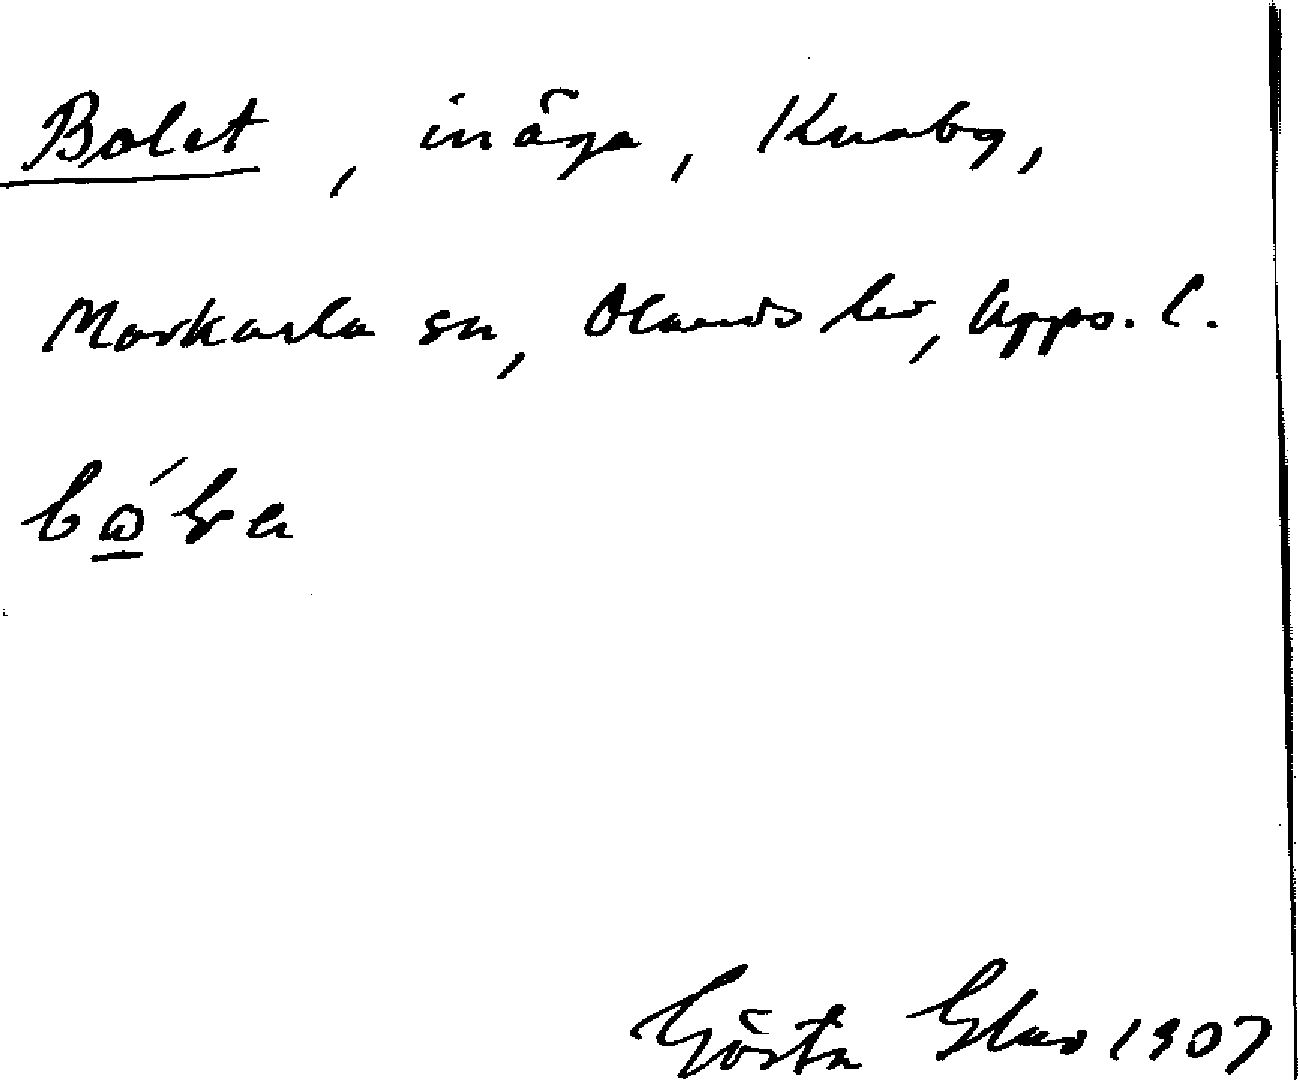 Bolet, inäga, Knaby,
Morkarla sn, Olands hd, Upps. l.
Gösta 1907